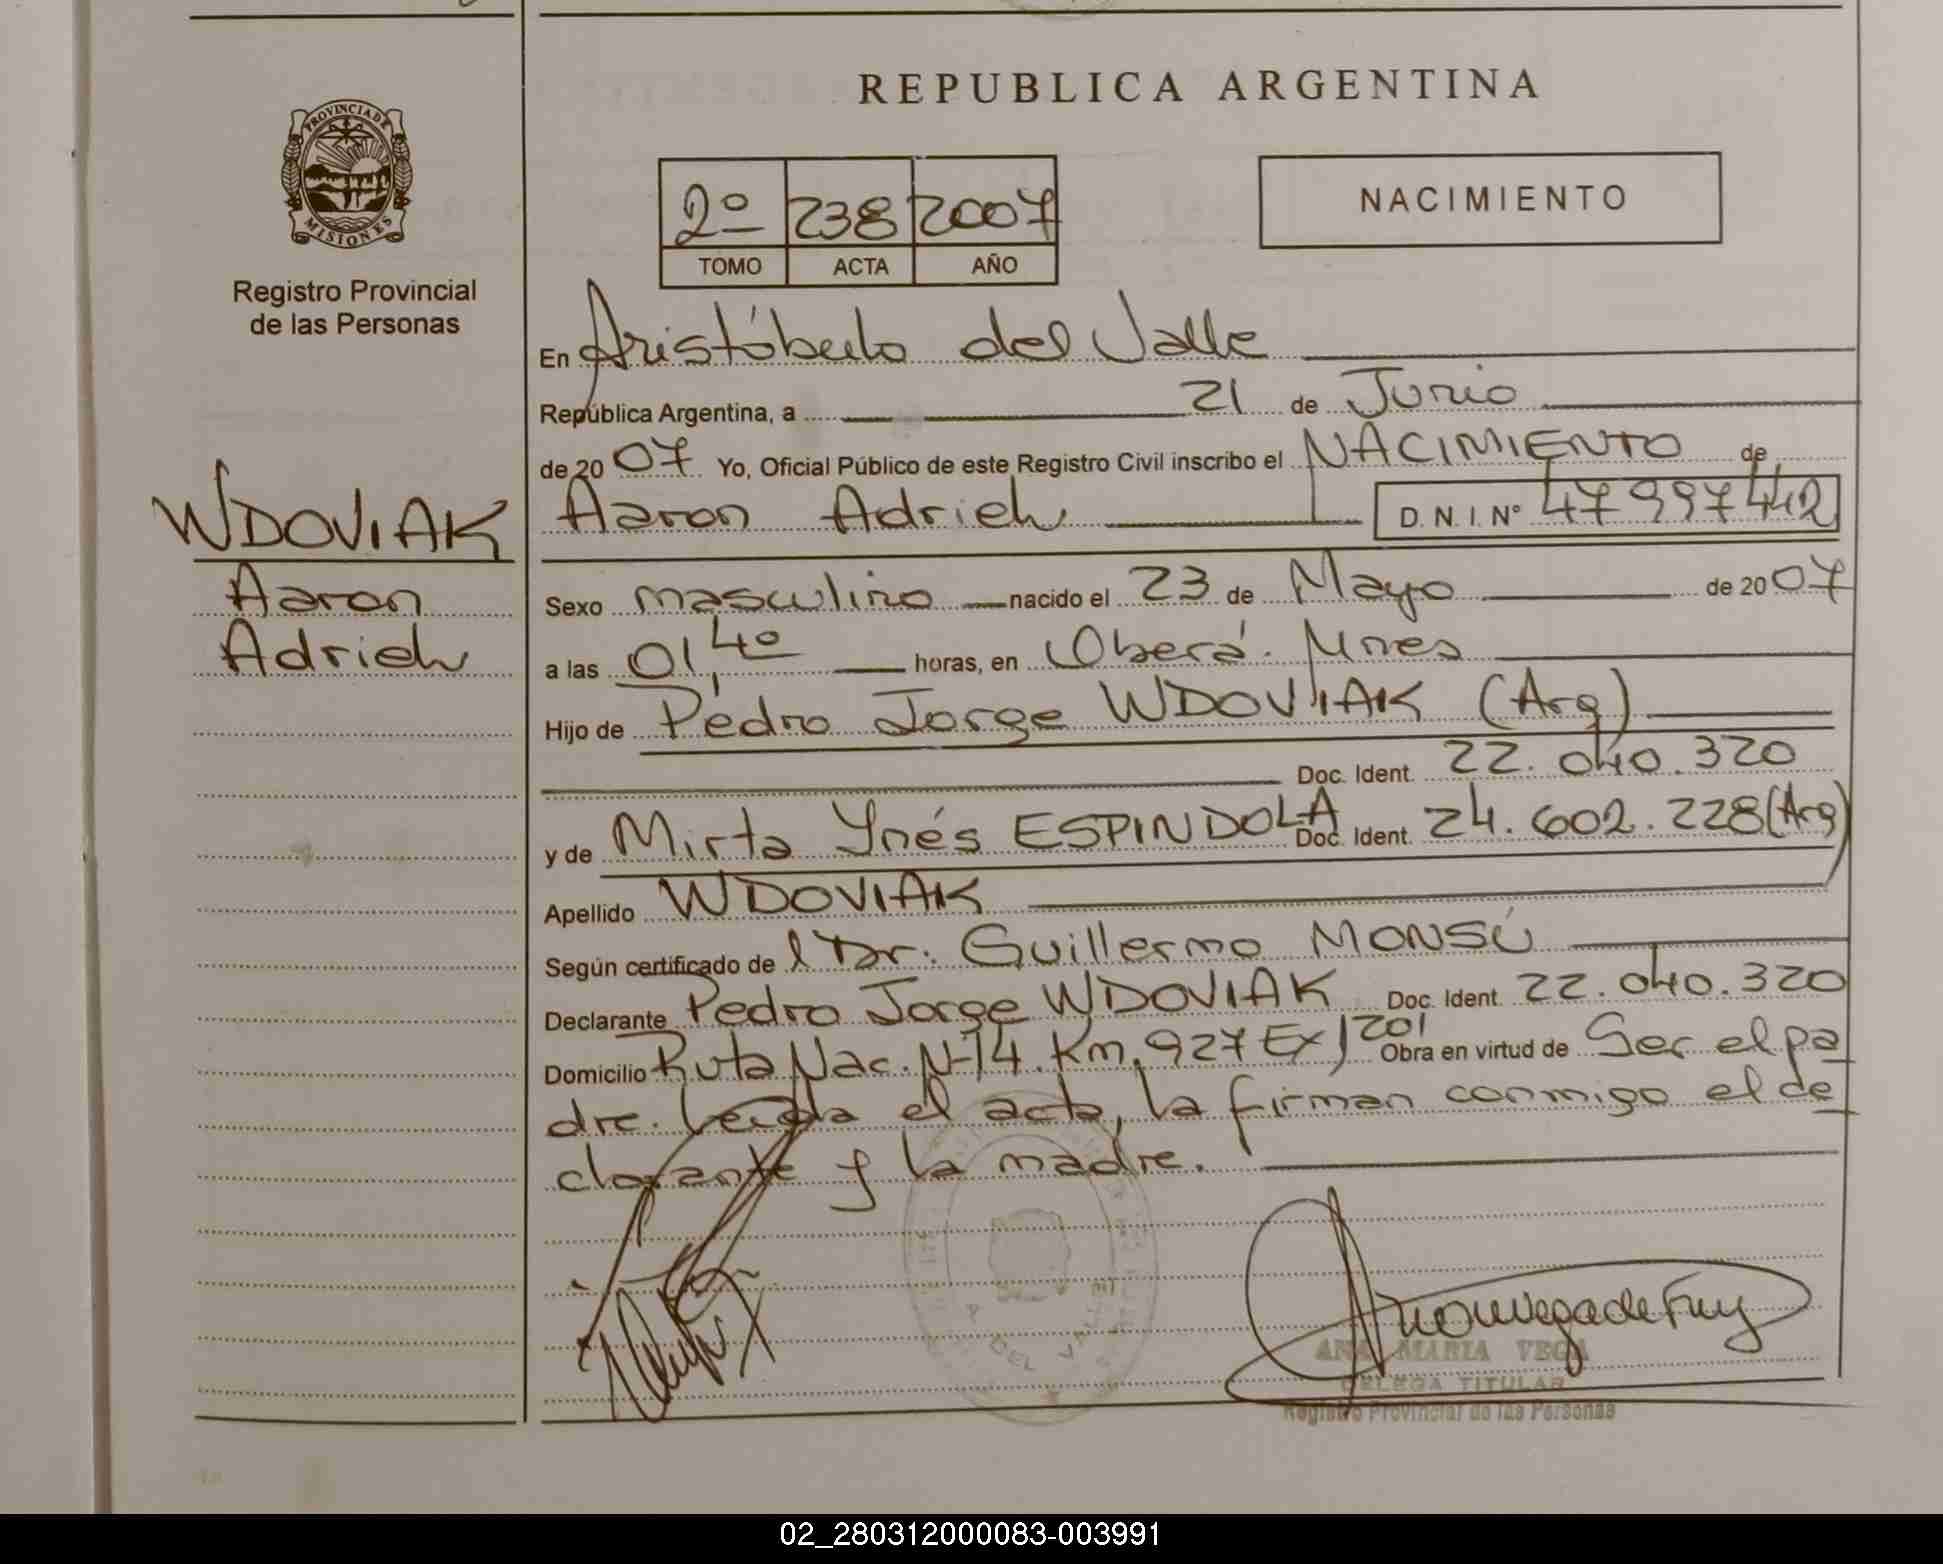 REPUBLICA ARGENTINA
PROVINCIA DE
MISIONES
Registro Provincial
de las Personas
2º 238 2007
TOMO ACTA AÑO
NACIMIENTO
En Aristóbulo del Valle
República Argentina, a 21 de Junio
de 2007 Yo, Oficial Público de este Registro Civil inscribo el NACIMIENTO de
Aaron Adriel D. N. I. Nº 47997442
WDOVIAK
Aaron
Adriel
Sexo masculino nacido el 23 de Mayo de 2007
a las 01,40 horas, en Oberá. Mnes
Hijo de Pedro Jorge WDOVIAK (Arg)
Doc. Ident. 22.040.320
y de Mirta Ynés ESPINDOLA Doc. Ident. 24.602.228 (Arg)
Apellido WDOVIAK
Según certificado de l Dr. Guillermo MONSÚ
Declarante Pedro Jorge WDOVIAK Doc. Ident. 22.040.320
Domicilio Ruta Nac. Nº 14. Km. 927 Ex/201 Obra en virtud de Ser el pa
dre. Leida el acta, la firman conmigo el de
clarante y la madre.
A DEL VALLE
ANA MARIA VEGA
DELEGA TITULAR
Registro Provincial de las Personas
02_280312000083-003991